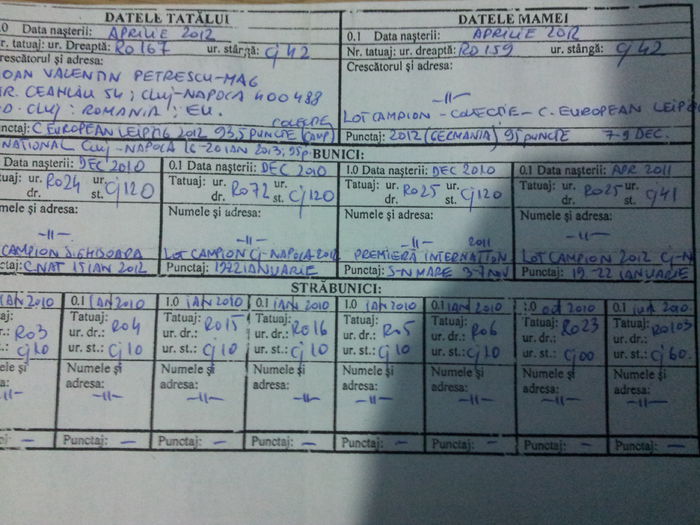 DATELE TATĂLUI
.0 Data nașterii: APRILIE 2012
Nr. tatuaj: ur. Dreaptă: RO167 ur. stângă: CJ42
Crescătorul și adresa:
IOAN VALENTIN PETRESCU-MAG
STR. CEAHLĂU 54; CLUJ-NAPOCA 400488
JUD. CLUJ; ROMANIA; EU.
COLECȚIE
Punctaj: C EUROPEAN LEIPZIG 2012 93,5 PUNCTE (CAMP)
NATIONAL CLUJ-NAPOCA 16-20 IAN 2013; 95p
DATELE MAMEI
0.1 Data nașterii: APRILIE 2012
Nr. tatuaj: ur. dreaptă: RO159 ur. stângă: CJ42
Crescătorul și adresa:
-||-
LOT CAMPION-COLECȚIE-C. EUROPEAN LEIPZ
Punctaj: 2012 (GERMANIA) 95 PUNCTE 7-9 DEC.
BUNICI:
Data nașterii: DEC 2010
Tatuaj: ur. RO24 ur. CJ120
dr. st.
Numele și adresa:
-||-
CAMPION SIGHISOARA
Punctaj: C.NAT 15 IAN 2012
0.1 Data nașterii: DEC 2010
Tatuaj: ur. RO72 ur. CJ120
dr. st.
Numele și adresa:
-||-
LOT CAMPION CJ-NAPOCA 2012
Punctaj: 19-22 IANUARIE
1.0 Data nașterii: DEC 2010
Tatuaj: ur. RO25 ur. CJ120
dr. st.
Numele și adresa:
-||- 2011
PREMIERĂ INTERNATION
Punctaj: S-N MARE 3-7 NOV
0.1 Data nașterii: APR 2011
Tatuaj: ur. RO25 ur. CJ41
dr. st.
Numele și adresa:
-||-
LOT CAMPION 2012 CJ-N
Punctaj: 19-22 IANUARIE
STRĂBUNICI:
IAN 2010
ur. dr.: RO3
ur. st.: CJ10
Numele și
adresa:
-||-
Punctaj: —
0.1 IAN 2010
Tatuaj: RO4
ur. dr.:
ur. st.: CJ10
Numele și
adresa:
-||-
Punctaj: —
1.0 IAN 2010
Tatuaj: RO15
ur. dr.:
ur. st.: CJ10
Numele și
adresa:
-||-
Punctaj: —
0.1 IAN 2010
Tatuaj: RO16
ur. dr.:
ur. st.: CJ10
Numele și
adresa:
-||-
Punctaj: —
1.0 IAN 2010
Tatuaj: RO5
ur. dr.:
ur. st.: CJ10
Numele și
adresa:
-||-
Punctaj: —
0.1 IAN 2010
Tatuaj: RO6
ur. dr.:
ur. st.: CJ10
Numele și
adresa:
-||-
Punctaj: —
1.0 2010
Tatuaj: RO23
ur. dr.:
ur. st.: CJ00
Numele și
adresa:
-||-
Punctaj: —
0.1 2010
Tatuaj: RO103
ur. dr.:
ur. st.: CJ60
Numele și
adresa:
-||-
Punctaj: —